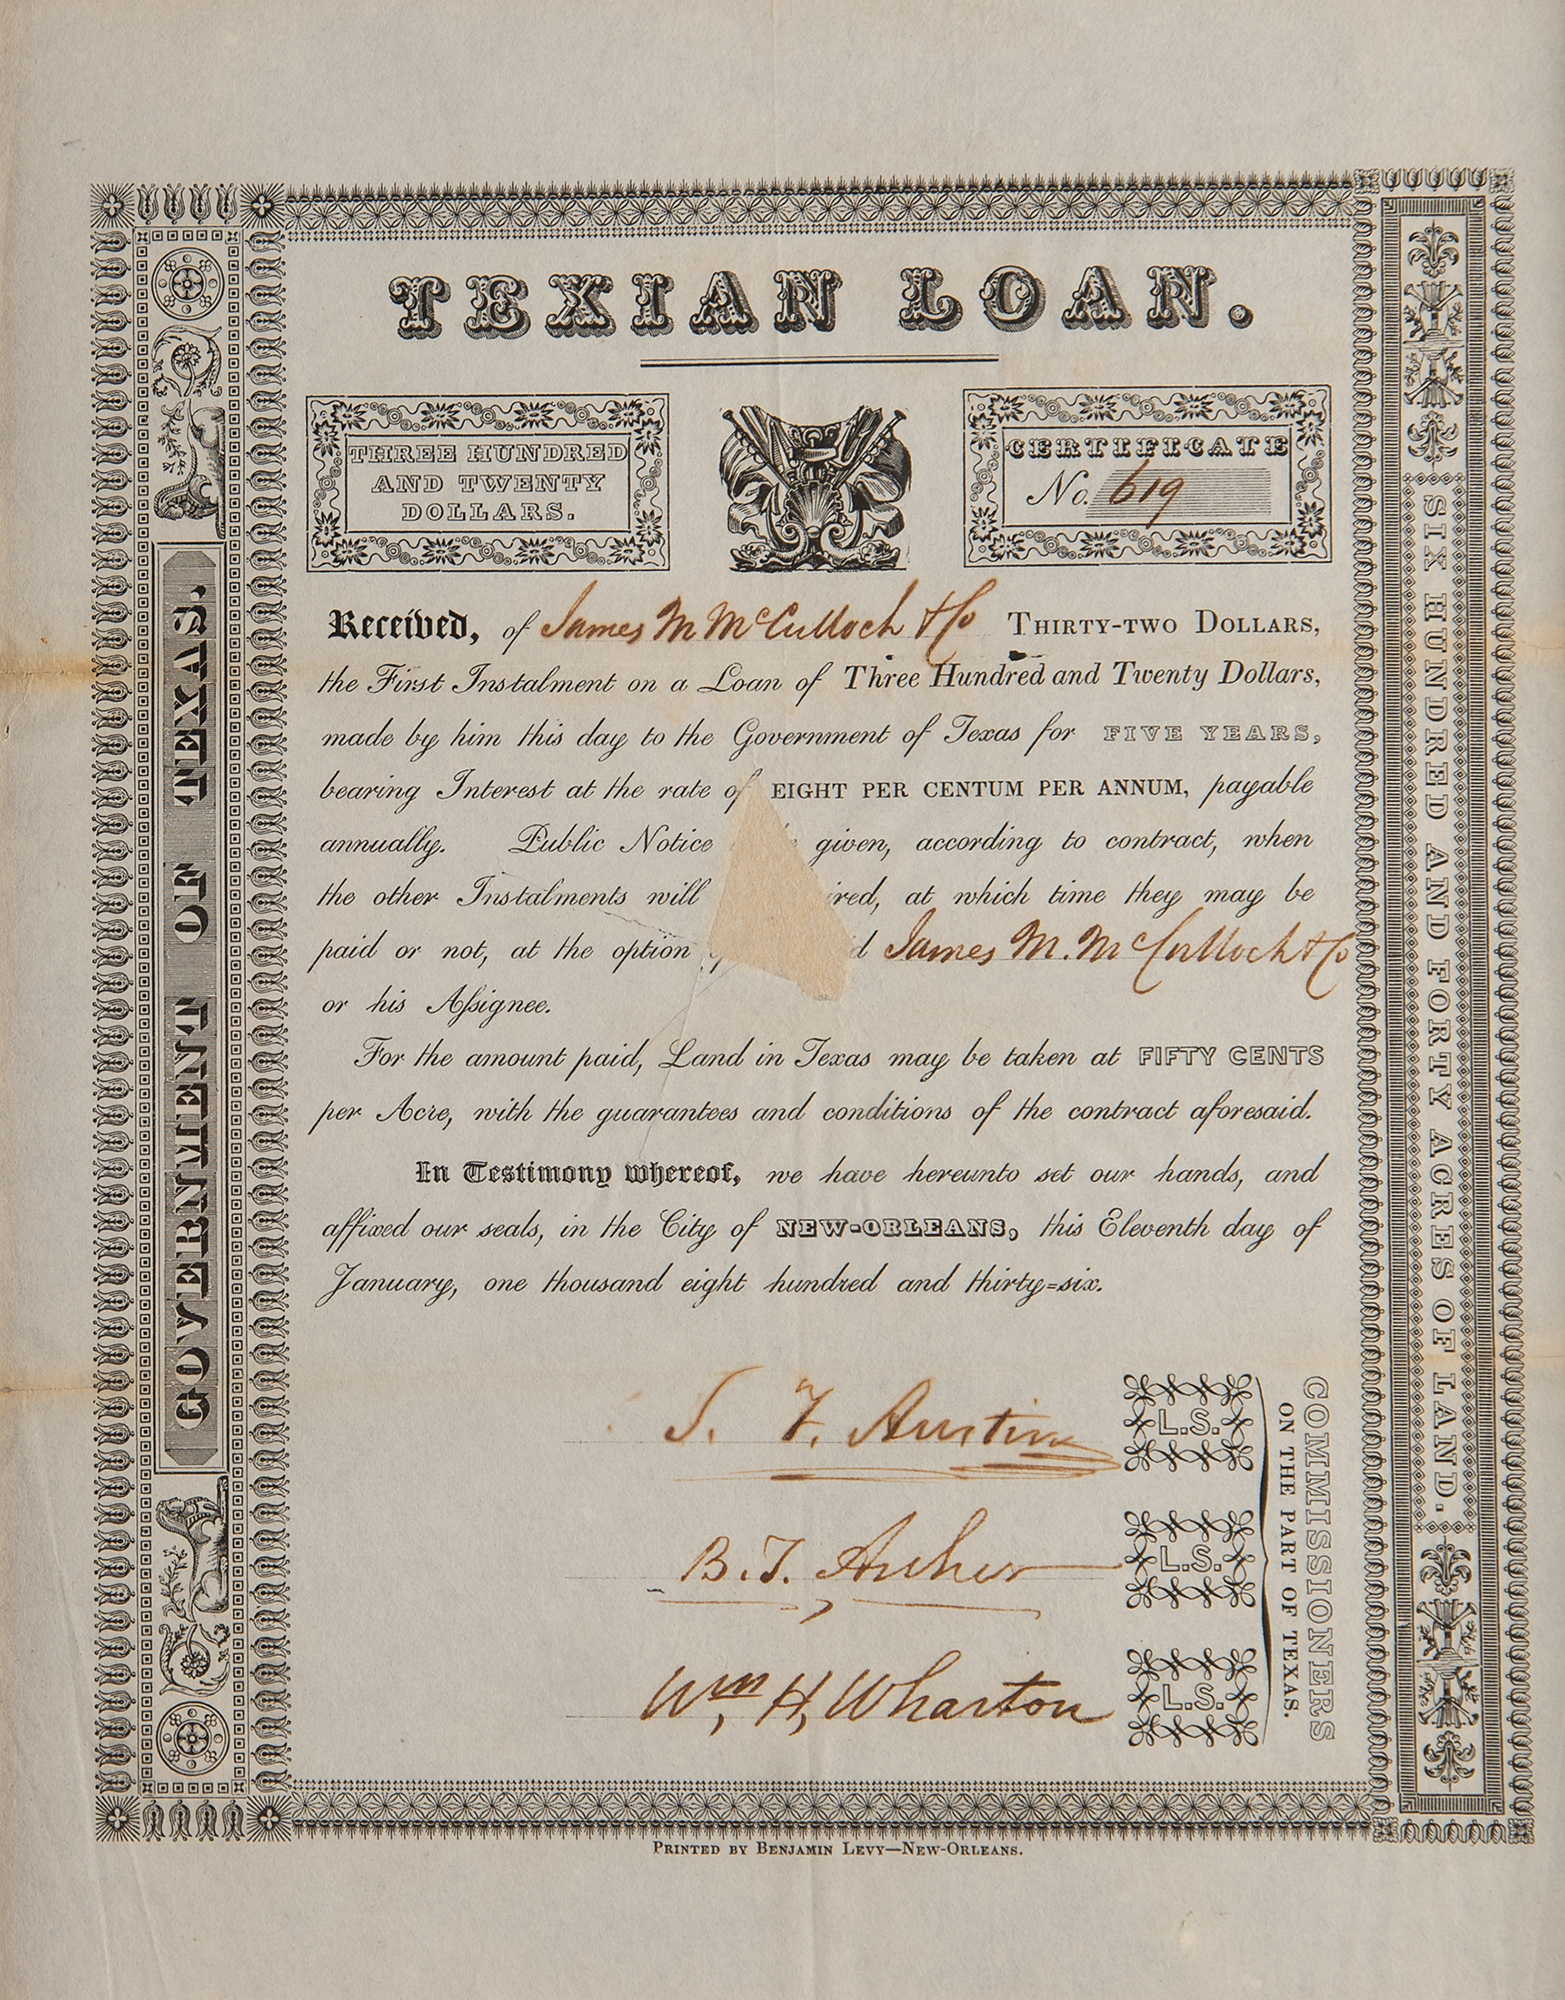 TEXIAN LOAN.
THREE HUNDRED
AND TWENTY
DOLLARS.
CERTIFICATE
No. 619
Received, of James M McCulloch & Co THIRTY-TWO DOLLARS,
the First Instalment on a Loan of Three Hundred and Twenty Dollars,
made by him this day to the Government of Texas for FIVE YEARS,
bearing Interest at the rate of EIGHT PER CENTUM PER ANNUM, payable
annually. Public Notice given, according to contract, when
the other Instalments will ired, at which time they may be
paid or not, at the option d James M. McCulloch & Co
or his Assignee.
For the amount paid, Land in Texas may be taken at FIFTY CENTS
per Acre, with the guarantees and conditions of the contract aforesaid.
In Testimony whereof, we have hereunto set our hands, and
affixed our seals, in the City of NEW-ORLEANS, this Eleventh day of
January, one thousand eight hundred and thirty=six.
S. F. Austin L.S.
B. T. Archer L.S.
Wm, H, Wharton L.S.
COMMISSIONERS
ON THE PART OF TEXAS.
GOVERNMENT OF TEXAS.
SIX HUNDRED AND FORTY ACRES OF LAND.
PRINTED BY BENJAMIN LEVY—NEW-ORLEANS.